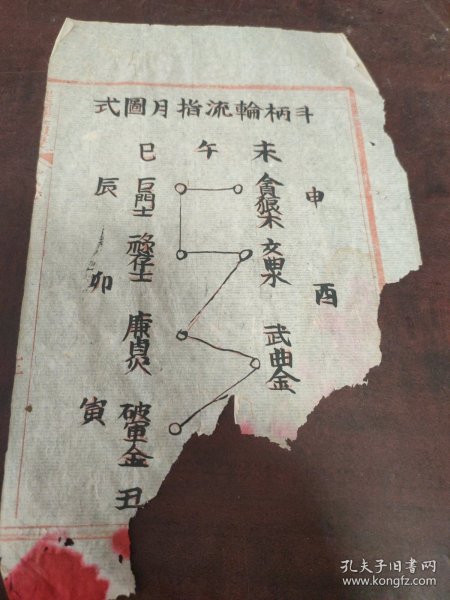 斗柄輪流指月圖式
未 午 巳
申 貪狼木 巨門土 辰
酉 文曲水 祿存土 卯
武曲金 廉貞火
破軍金 寅
丑
孔夫子旧书网
www.kongfz.com